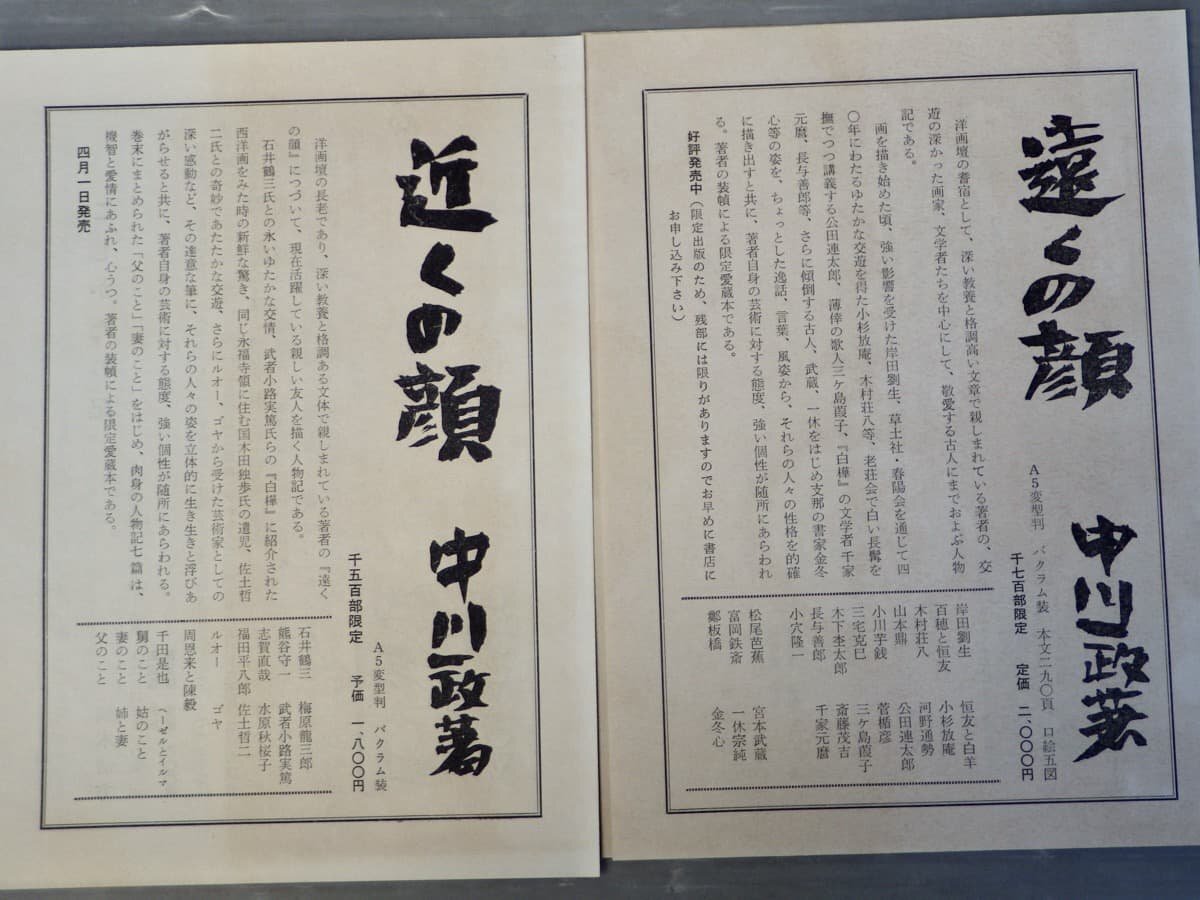 遠くの顔　中川一政著
A5変型判　バクラム装　本文二九〇頁　口絵五図
千七百部限定　定価　二、〇〇〇円
洋画壇の耆宿として、深い教養と格調高い文章で親しまれている著者の、交
遊の深かった画家、文学者たちを中心にして、敬愛する古人にまでおよぶ人物
記である。
画を描き始めた頃、強い影響を受けた岸田劉生、草土社・春陽会を通じて四
〇年にわたるゆたかな交遊を得た小杉放庵、木村荘八等、老荘会で白い長髯を
撫でつつ講義する公田連太郎、薄倖の歌人三ケ島葭子、『白樺』の文学者千家
元麿、長与善郎等、さらに傾倒する古人、武蔵、一休をはじめ支那の書家金冬
心等の姿を、ちょっとした逸話、言葉、風姿から、それらの人々の性格を的確
に描き出すと共に、著者自身の芸術に対する態度、強い個性が随所にあらわれ
る。著者の装幀による限定愛蔵本である。
好評発売中（限定出版のため、残部には限りがありますのでお早めに書店に
お申し込み下さい）
岸田劉生　恒友と白羊
百穂と恒友　小杉放庵
木村荘八　河野通勢
山本鼎　公田連太郎
小川芋銭　菅楯彦
三宅克巳　三ケ島葭子
木下杢太郎　斎藤茂吉
長与善郎　千家元麿
小穴隆一
松尾芭蕉　宮本武蔵
富岡鉄斎　一休宗純
鄭板橋　金冬心
近くの顔　中川一政著
A5変型判　バクラム装
千五百部限定　予価　一、八〇〇円
洋画壇の長老であり、深い教養と格調ある文体で親しまれている著者の『遠く
の顔』につづいて、現在活躍している親しい友人を描く人物記である。
石井鶴三氏との永いゆたかな交情、武者小路実篤氏らの『白樺』に紹介された
西洋画をみた時の新鮮な驚き、同じ永福寺領に住む国木田独歩氏の遺児、佐土哲
二氏との奇妙であたたかな交遊、さらにルオー、ゴヤから受けた芸術家としての
深い感動など、その達意な筆に、それらの人々の姿を立体的に生き生きと浮びあ
がらせると共に、著者自身の芸術に対する態度、強い個性が随所にあらわれる。
巻末にまとめられた「父のこと」「妻のこと」をはじめ、肉身の人物記七篇は、
機智と愛情にあふれ、心うつ。著者の装幀による限定愛蔵本である。
四月一日発売
石井鶴三　梅原龍三郎
熊谷守一　武者小路実篤
志賀直哉　水原秋桜子
福田平八郎　佐土哲二
ルオー　ゴヤ
周恩来と陳毅
千田是也　ヘーゼルとイルマ
舅のこと　姑のこと
妻のこと　姉と妻
父のこと